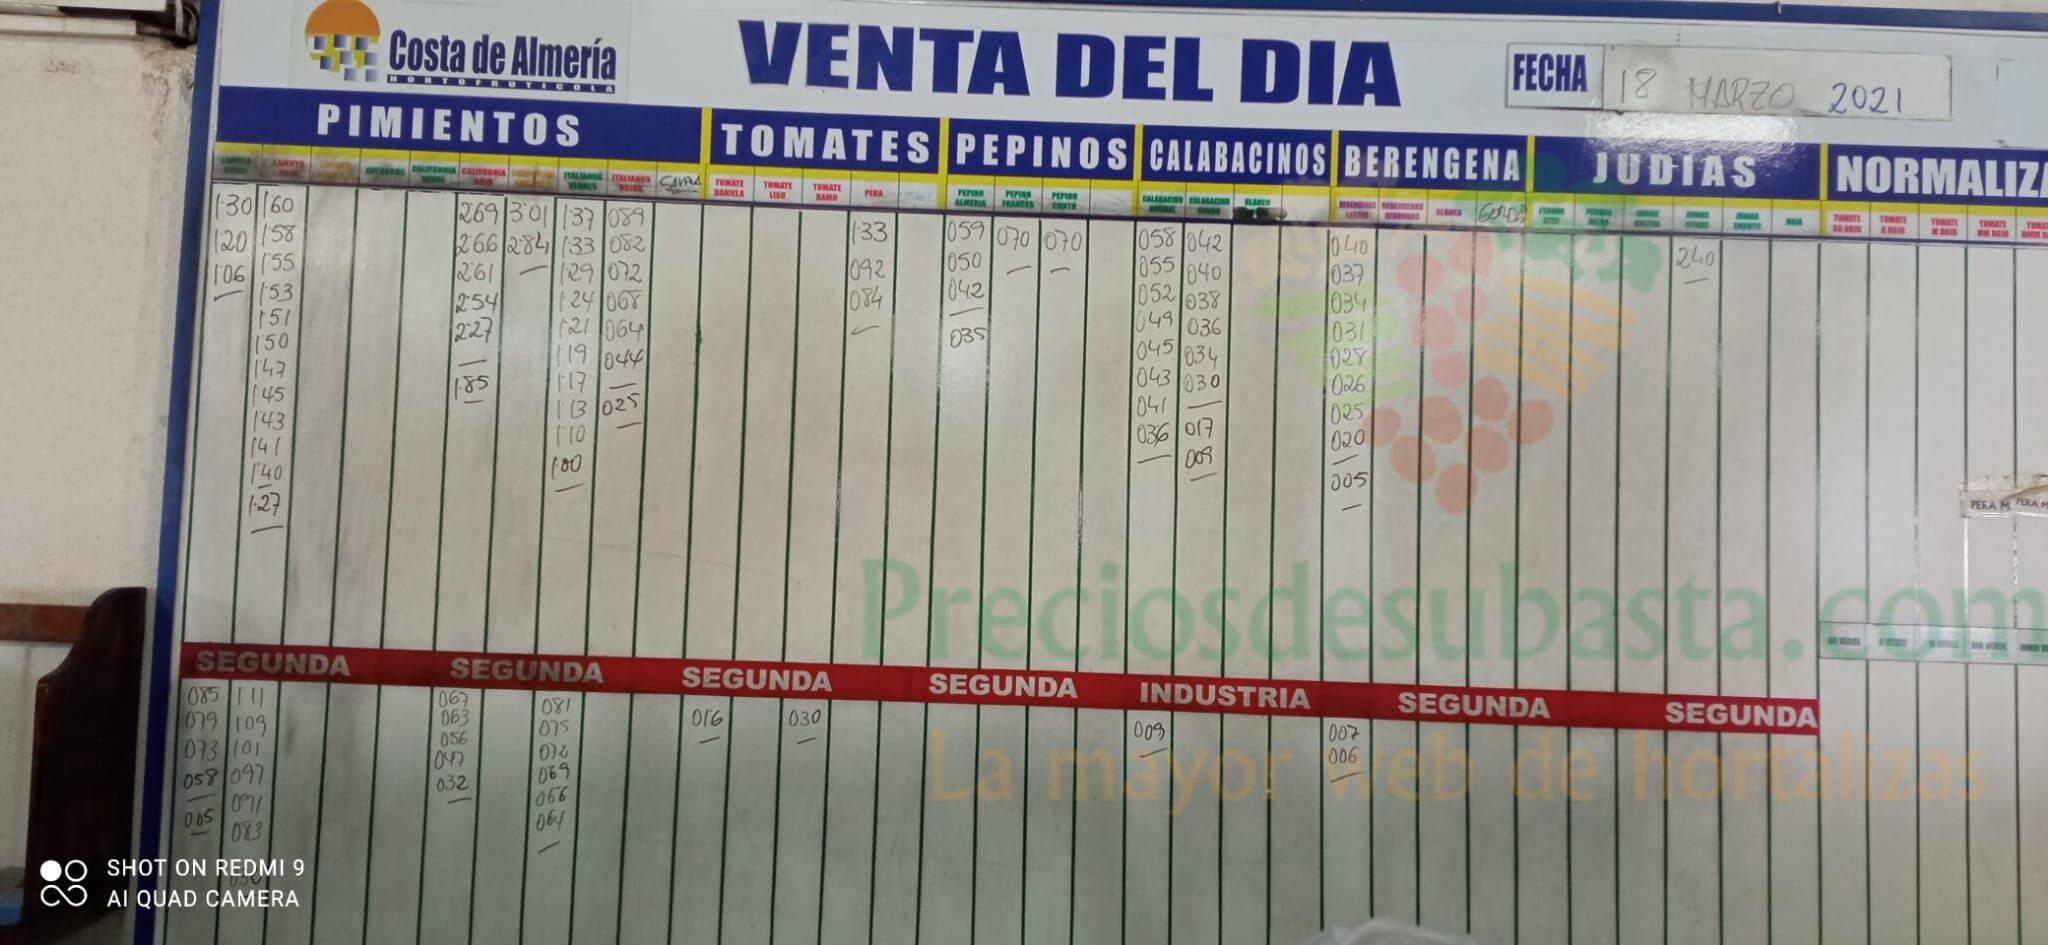 Costa de Almería
HORTOFRUTICOLA
VENTA DEL DIA
FECHA 18 MARZO 2021
PIMIENTOS TOMATES PEPINOS CALABACINOS BERENGENA JUDIAS NORMALIZA
LAMUYO ROJO CALIFORNIA VERDE CALIFORNIA ROJO ITALIANOS VERDES ITALIANOS ROJOS TOMATE DANIELA TOMATE LISO TOMATE RAMO PERA PEPINO ALMERIA PEPINO FRANCES PEPINO CORTO CALABACINO GORDO BLANCO BLANCA GORDA
1'30 1'60 2'69 3'01 1'37 089 1'33 059 070 070 058 042 040 240
1'20 1'58 2'66 2'84 1'33 082 092 050 055 040 037
1'06 1'55 2'61 1'29 072 084 042 052 038 034
1'53 2'54 1'24 068 035 049 036 031
1'51 2'27 1'21 064 045 034 028
1'50 1'85 1'19 044 043 030 026
1'47 1'17 025 041 017 025
1'45 1'13 036 009 020
1'43 1'10 005
1'41 1'00
1'40
1'27
PERA M PERA M
Preciosdesubasta.com
SEGUNDA SEGUNDA SEGUNDA SEGUNDA INDUSTRIA SEGUNDA SEGUNDA
085 111 067 081 016 030 009 007
079 109 063 075 006
073 101 056 072
058 097 047 069
005 091 032 066
083 064
La mayor web de hortalizas
SHOT ON REDMI 9
AI QUAD CAMERA